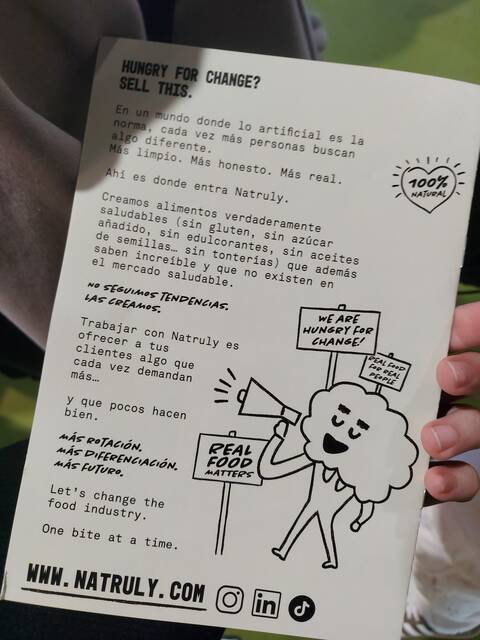 HUNGRY FOR CHANGE?
SELL THIS.
En un mundo donde lo artificial es la
norma, cada vez más personas buscan
algo diferente.
Más limpio. Más honesto. Más real.
Ahí es donde entra Natruly.
Creamos alimentos verdaderamente
saludables (sin gluten, sin azúcar
añadido, sin edulcorantes, sin aceites
de semillas… sin tonterías) que además
saben increíble y que no existen en
el mercado saludable.
100%
NATURAL
NO SEGUIMOS TENDENCIAS.
LAS CREAMOS.
Trabajar con Natruly es
ofrecer a tus
clientes algo que
cada vez demandan
más…
y que pocos hacen
bien.
MÁS ROTACIÓN.
MÁS DIFERENCIACIÓN.
MÁS FUTURO.
Let's change the
food industry.
One bite at a time.
WE ARE
HUNGRY FOR
CHANGE!
REAL FOOD
FOR REAL
PEOPLE
REAL
FOOD
MATTERS
WWW.NATRULY.COM
in